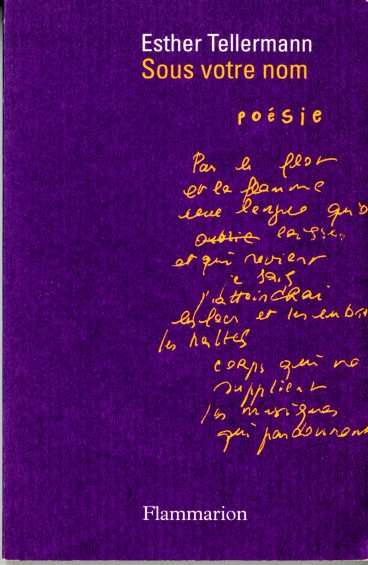 Esther Tellermann
Sous votre nom
poésie
Par le flot
et la flamme
une langue qu'o
oublie laisse
et qui revient
je sais
j'attoindrai
les lacs et les
les haltes
corps qui ne
supplient
les musiques
qui pardonnent
Flammarion